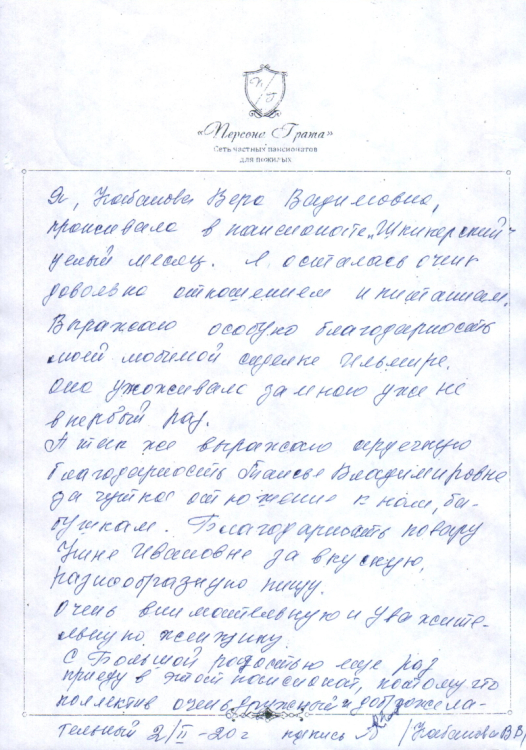 П Г
«Персона Грата»
Сеть частных пансионатов
для пожилых
Я, Кабанова Вера Вадимовна,
проживала в пансионате „Шкиперский"
целый месяц. Я осталась очень
довольна отношением и питанием.
Выражаю особую благодарность
моей любимой сиделке Ильмире.
Она ухаживала за мною уже не
в первый раз.
А так же выражаю сердечную
благодарность Таисье Владимировне
за чуткое отношение к нам, ба-
бушкам. Благодарность повару
Инне Ивановне за вкусную,
разнообразную пищу.
Очень внимательную и уважите-
льную женщину.
С большой радостью еще раз
приеду в этот пансионат, потому что
коллектив очень дружный и доброжела-
тельный 2/II-20г подпись /Кабанова В.В./